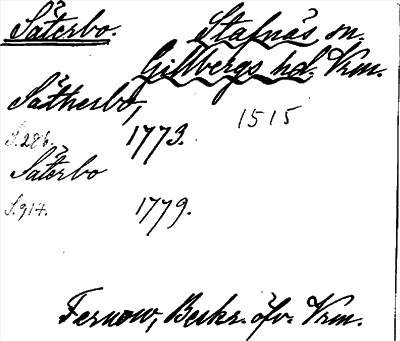 Säterbo.
Stafnäs sn.
Gillbergs hd. Vrm.
Sätherbo,
1515
S. 286. 1773.
Säterbo
S. 914. 1779.
Fernow, Beskr. öfv. Vrm.